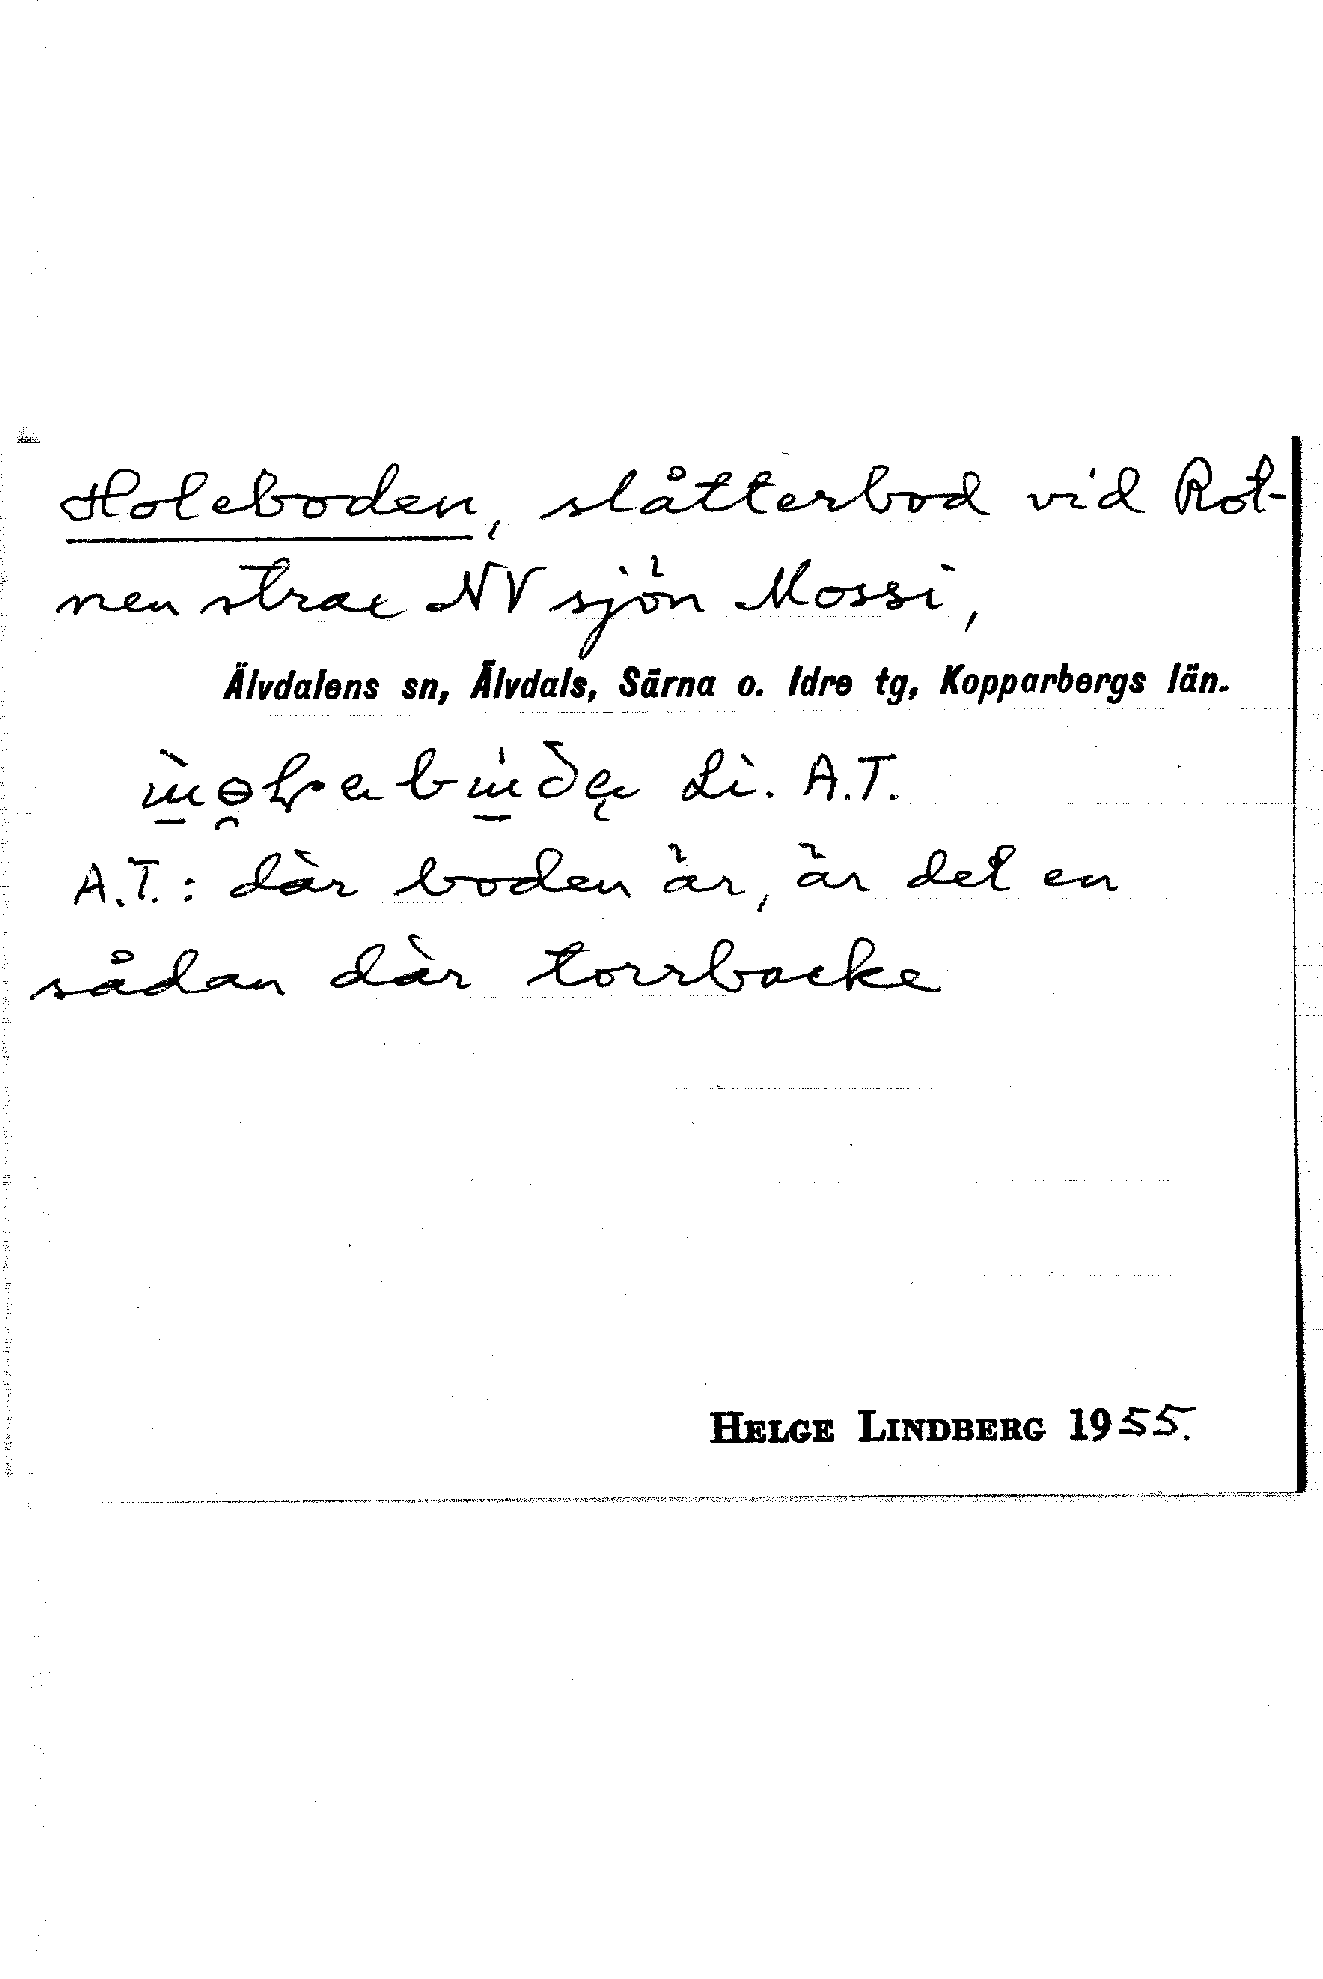 Holeboden, slåtterbod vid Rot-
nen strax NV sjön Mossi,
Älvdalens sn, Älvdals, Särna o. Idre tg, Kopparbergs län.
Li. A.T.
A.T.: där boden är, är det en
sådan där torrbacke
HELGE LINDBERG 1955.